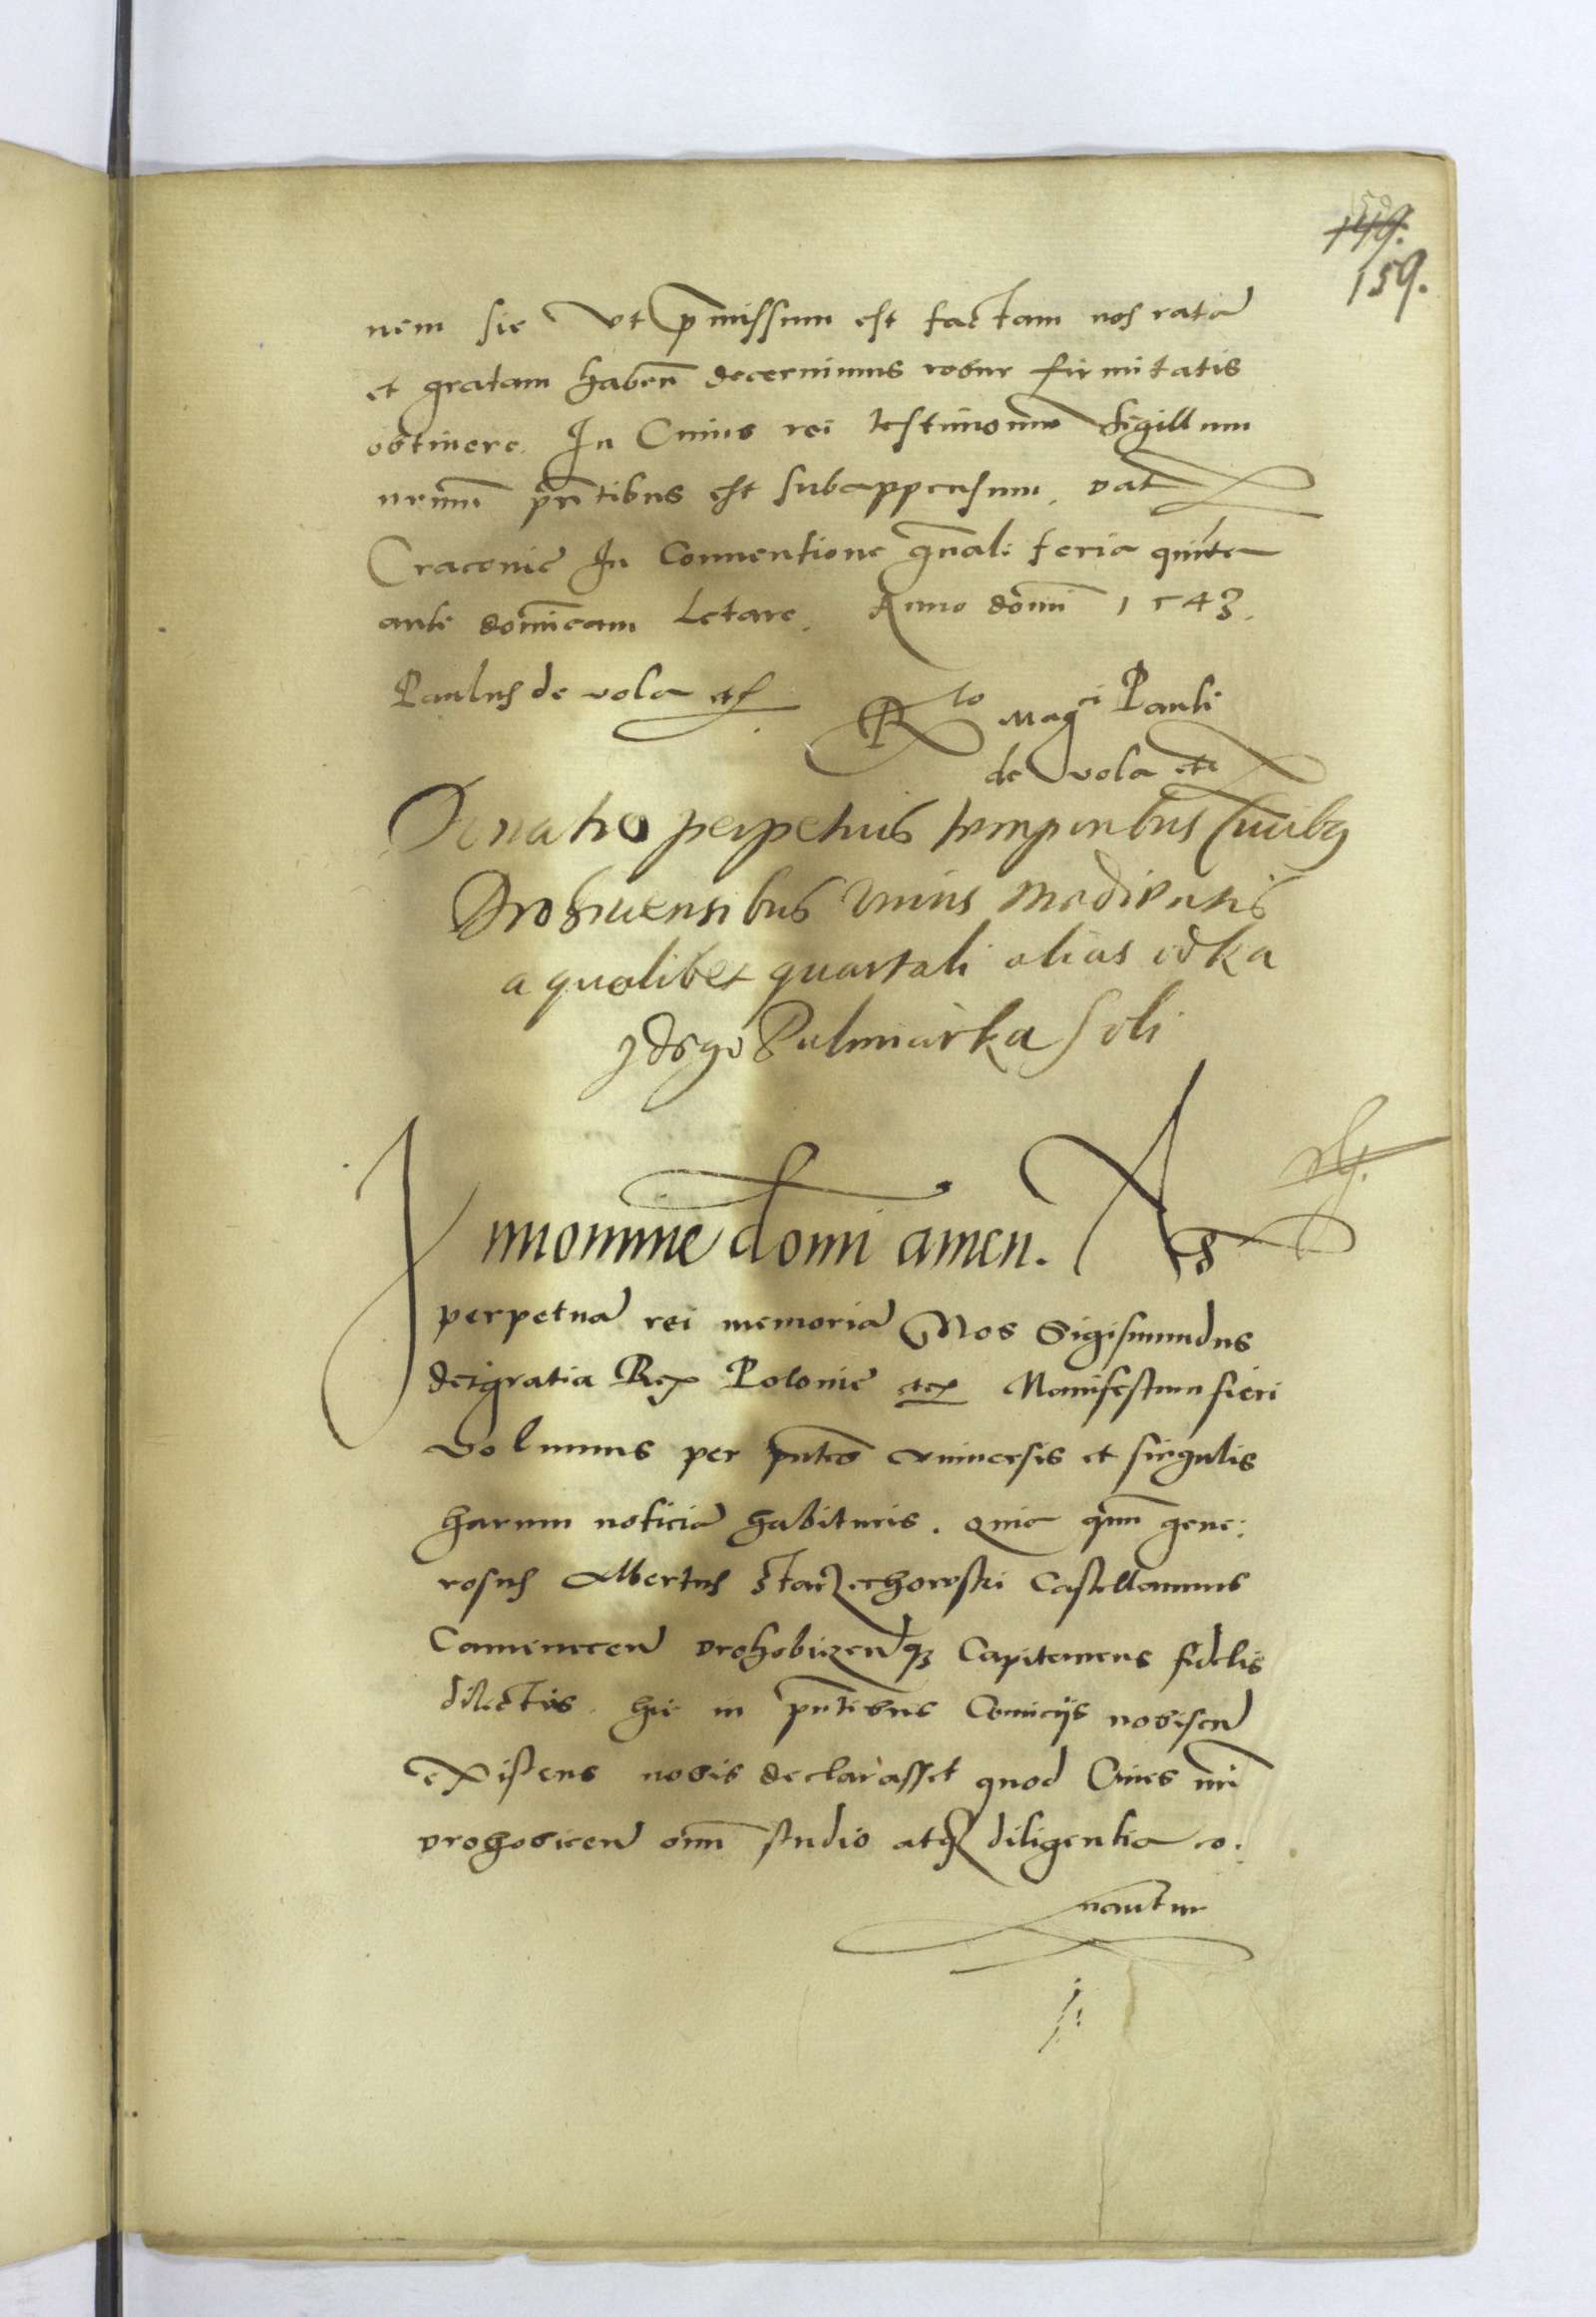 149.
159.
nem sic Vt pmissum est factam nos ratā
et gratam haben̄ decernimus robur firmitatis
obtinere. In Cuius rei testimoniū Sigillum
nrum pn̄tibus est subappensum. Dat
Cracovie In Conventione gn̄ali feria quinta
ante domi̅cam Letare. Anno domi̅ 1543.
Paulus de vola etc
Rto Magci Pauli
de vola etc
Donatio perpetuis temporibus Civibꝫ
Drohivensibus Vnius Medietatis
a qualibet quartali alias od ka
zdego Pulmiarka Soli
In nomine domi amen. Ad
perpetuā rei memoriā Nos Sigismundus
dei gratia Rex Polonie etc Manifestum fieri
volumus per pn̄tes vniversis et singulis
harum noticiā habituris. quia qum̄ gene:
rosus Albertus Starzechowski Castellanus
Camenecen̄ Drohobiczen̄qꝫ Capitaneus fidelis
dilectus hic in pn̄tibus Comicijs nobiscū
existens nobis declarasset quod Cives nr̄i
Drohobicen̄ omi̅ studio atqꝫ diligentia co:
nantur